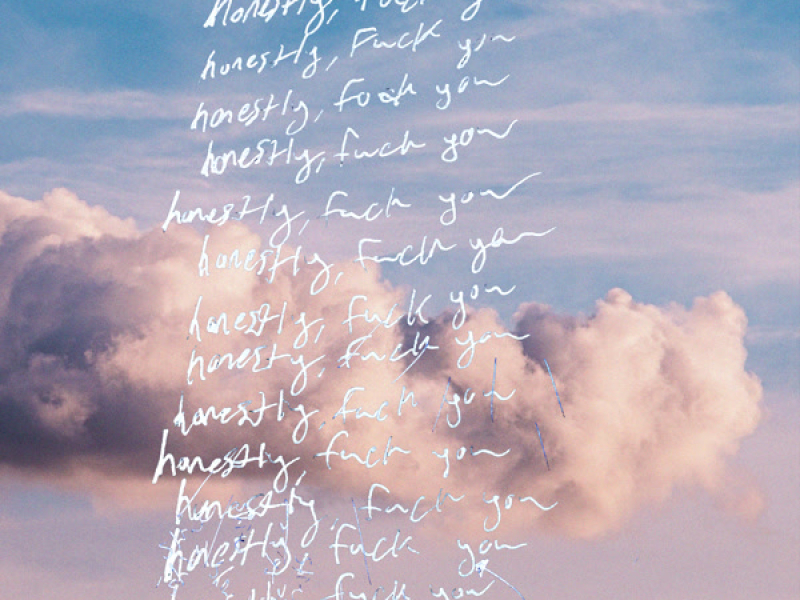 honestly, fuck you
honestly, Fuck you
honestly, fuck you
honestly, fuck you
honestly, fuck you
honestly, fuck you
honestly, fuck you
honestly, fuck you
honestly, fuck you
honestly, fuck you
honestly, fuck you
honestly, fuck you
fuck you